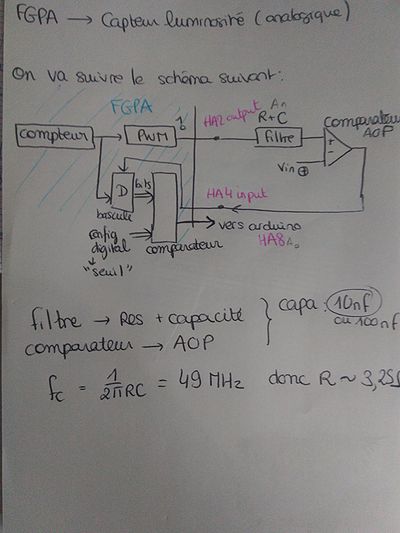 FGPA → Capteur luminosité (analogique)
On va suivre le schéma suivant:
FGPA
compteur
PWM
1
HA2 output
An
R+C
Filtre
comparateur
AOP
+
-
Vin +
D
bits
bascule
HA4 input
vers arduino
HA8 A0
config
digital
"seuil"
comparateur
filtre → Res + capacité
comparateur → AOP
capa : 10nf
ou 100nf
fc = 1/2πRC = 49 MHz donc R ~ 3,25